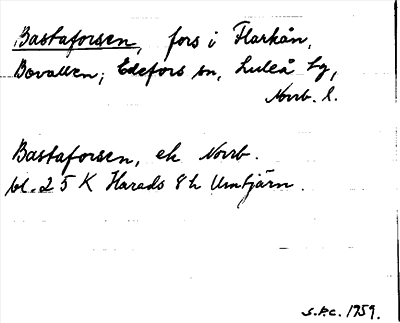 Bastaforsen, fors i Flarkån,
Bovallen; Edefors sn, Luleå tg,
Norrb. l.
Bastaforsen, ek Norrb.
bl. 25 K Harads 8 h Umtjärn.
s.p.c. 1959.